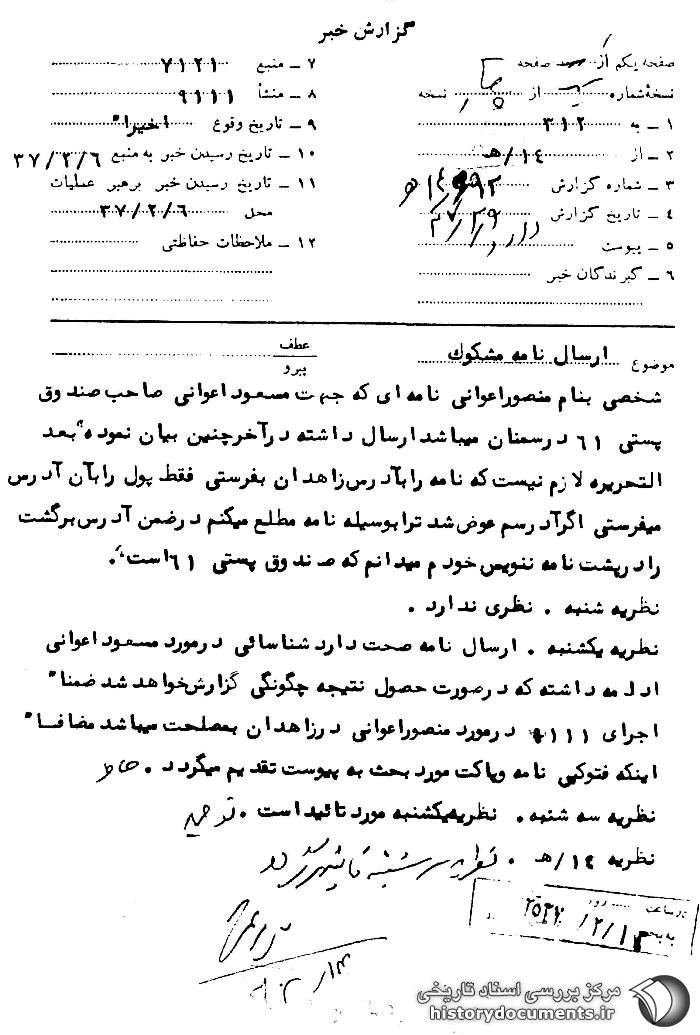 گزارش خبر
صفحه یکم از یک صفحه
نسخهٔ شماره از نسخه
۱ ـ به ۳۱۲
۲ ـ از ۱۴/هـ
۳ ـ شماره گزارش
۴ ـ تاریخ گزارش
۵ ـ پیوست دارد
۶ ـ گیرندگان خبر
۷ ـ منبع ۷۱۲۱
۸ ـ منشأ ۹۱۱۱
۹ ـ تاریخ وقوع اخیرا"
۱۰ ـ تاریخ رسیدن خبر به منبع ۳۷/۲/۶
۱۱ ـ تاریخ رسیدن خبر برهبر عملیات
محل ۳۷/۲/۶
۱۲ ـ ملاحظات حفاظتی
موضوع ارسال نامه مشکوک
عطف
پیرو
شخصی بنام منصوراعوانی نامه ای که جهت مسعود اعوانی صاحب صندوق
پستی ۶۱ درسمنان میباشد ارسال داشته درآخرچنین بیان نموده "بعد
التحریره لازم نیست که نامه رابآدرس زاهدان بفرستی فقط پول رابآن آدرس
میفرستی اگرآدرسم عوض شد ترا بوسیله نامه مطلع میکنم درضمن آدرس برگشت
رادرپشت نامه ننویس خودم میدانم که صندوق پستی ۶۱ است".
نظریه شنبه . نظری ندارد .
نظریه یکشنبه . ارسال نامه صحت دارد شناسائی درمورد مسعود اعوانی
ادامه داشته که درصورت حصول نتیجه چگونگی گزارش خواهد شد ضمنا"
اجرای ۹۱۱۱ درمورد منصوراعوانی درزاهدان بمصلحت میباشد مضافا"
اینکه فتوکپی نامه وپاکت مورد بحث به پیوست تقدیم میگردد .
نظریه سه شنبه . نظریه یکشنبه مورد تائید است .
نظریه ۱۴/هـ . نظریه سه شنبه تائید میگردد
درساعت روز
۲۵۳۷/۲/۱۳
مرکز بررسی اسناد تاریخی
historydocuments.ir